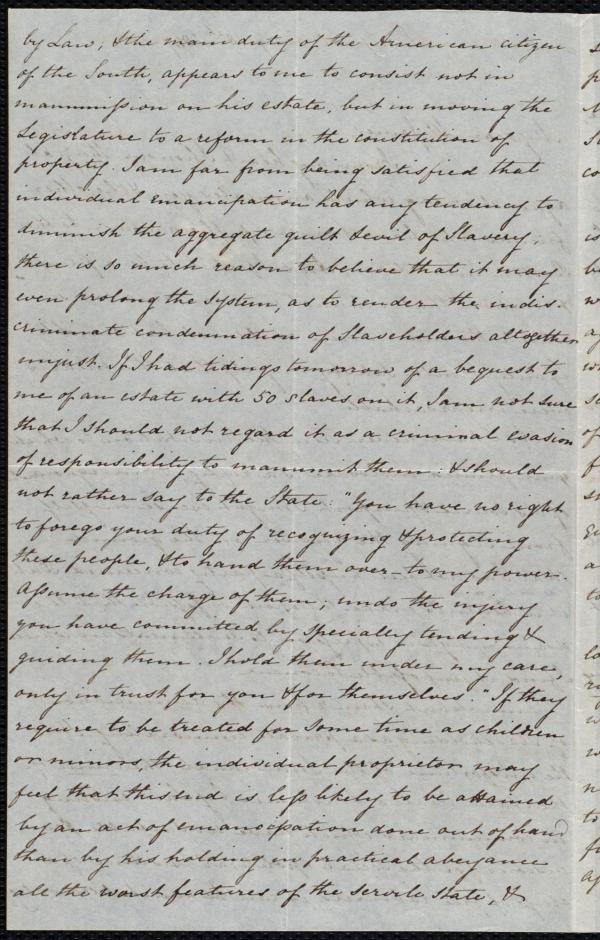 by Law; & the main duty of the American citizen
of the South, appears to me to consist not in
manumission on his estate, but in moving the
Legislature to a reform in the constitution of
property. I am far from being satisfied that
individual emancipation has any tendency to
diminish the aggregate guilt & evil of Slavery;
there is so much reason to believe that it may
even prolong the system, as to render the indis-
criminate condemnation of Slaveholders altogether
unjust. If I had tidings tomorrow of a bequest to
me of an estate with 50 slaves on it, I am not sure
that I should not regard it as a criminal evasion
of responsibility to manumit them: & should
not rather say to the State: "You have no right
to forego your duty of recognizing & protecting
these people, & to hand them over to my power.
Assume the charge of them; undo the injury
you have committed by specially tending &
guiding them. I hold them under my care,
only in trust for you & for themselves." If they
require to be treated for some time as children
or minors, the individual proprietor may
feel that this end is less likely to be attained
by an act of emancipation done out of hand
than by his holding in practical abeyance
all the worst features of the servile state, &